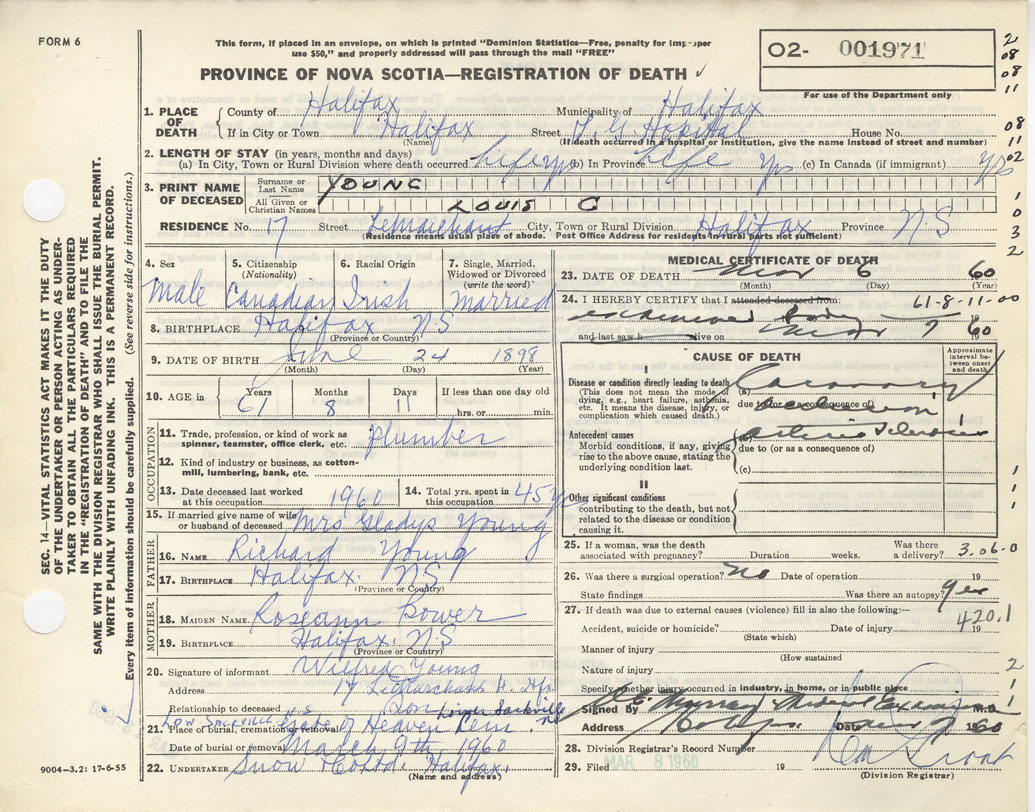 FORM 6
This form, if placed in an envelope, on which is printed "Dominion Statistics—Free, penalty for improper
use $50," and properly addressed will pass through the mail "FREE"
PROVINCE OF NOVA SCOTIA—REGISTRATION OF DEATH ✓
02- 001971
For use of the Department only
2
08
08
11
1. PLACE OF DEATH
County of Halifax Municipality of Halifax
If in City or Town Halifax Street V. G Hospital House No.
(Name) (If death occurred in a hospital or institution, give the name instead of street and number)
08
11
2. LENGTH OF STAY (in years, months and days)
(a) In City, Town or Rural Division where death occurred life yrs (b) In Province life yrs (c) In Canada (if immigrant) yrs
02
3. PRINT NAME OF DECEASED
Surname or Last Name YOUNG
All Given or Christian Names LOUIS C
1
0
3
2
RESIDENCE No. 17 Street LeMarchant City, Town or Rural Division Halifax Province N S
(Residence means usual place of abode. Post Office Address for residents in rural parts not sufficient)
4. Sex Male
5. Citizenship (Nationality) Canadian
6. Racial Origin Irish
7. Single, Married, Widowed or Divorced (write the word) Married
8. BIRTHPLACE Halifax N S
(Province or Country)
9. DATE OF BIRTH June 24 1898
(Month) (Day) (Year)
10. AGE in Years 61 Months 8 Days 11 If less than one day old hrs. or min.
OCCUPATION
11. Trade, profession, or kind of work as spinner, teamster, office clerk, etc. plumber
12. Kind of industry or business, as cotton-mill, lumbering, bank, etc.
13. Date deceased last worked at this occupation 1960
14. Total yrs. spent in this occupation 45 yrs
15. If married give name of wife or husband of deceased Mrs Gladys Young
FATHER
16. NAME Richard Young
17. BIRTHPLACE Halifax. NS
(Province or Country)
MOTHER
18. MAIDEN NAME Roseann Bower
19. BIRTHPLACE Halifax. N S
(Province or Country)
20. Signature of informant Wilfred Young
Address 17 LeMarchant St. Hfx.
Relationship to deceased Son
LOW. SACKVILLE N.S Lower Sackville NS
21. Place of burial, cremation or removal Gate of Heaven Cem.
Date of burial or removal March 9th, 1960
22. UNDERTAKER Snow Co Ltd. Halifax.
(Name and address)
MEDICAL CERTIFICATE OF DEATH
23. DATE OF DEATH Mar 6 60
(Month) (Day) (Year)
61-8-11-00
24. I HEREBY CERTIFY that I attended deceased from:
examined body 19
and last saw h alive on Mar 7 1960
CAUSE OF DEATH
Approximate interval between onset and death
I
Disease or condition directly leading to death
(This does not mean the mode of dying, e.g., heart failure, asthenia, etc. It means the disease, injury, or complication which caused death.)
(a) Coronary
due to (or as a consequence of) occlusion
Antecedent causes
Morbid conditions, if any, giving rise to the above cause, stating the underlying condition last.
(b) arterio sclerosis
due to (or as a consequence of)
(c)
1
II
Other significant conditions
contributing to the death, but not related to the disease or condition causing it.
1
1
1
25. If a woman, was the death associated with pregnancy? Duration weeks. Was there a delivery? 3.06-0
26. Was there a surgical operation? No Date of operation 19
State findings Was there an autopsy? Yes
27. If death was due to external causes (violence) fill in also the following:—
420.1
Accident, suicide or homicide? Date of injury 19
(State which)
Manner of injury
(How sustained)
Nature of injury
2
Specify whether injury occurred in industry, in home, or in public place
1
Signed by Murray Medical Examiner M.D.
1
Address Date Mar 7 1960
28. Division Registrar's Record Number
29. Filed MAR 8 1960 19
(Division Registrar)
SEC. 14—VITAL STATISTICS ACT MAKES IT THE DUTY
OF THE UNDERTAKER OR PERSON ACTING AS UNDER-
TAKER TO OBTAIN ALL THE PARTICULARS REQUIRED
IN THE "REGISTRATION OF DEATH" AND FILE THE
SAME WITH THE DIVISION REGISTRAR WHO SHALL ISSUE THE BURIAL PERMIT.
WRITE PLAINLY WITH UNFADING INK. THIS IS A PERMANENT RECORD.
Every item of information should be carefully supplied. (See reverse side for instructions.)
9004-3.2: 17-6-55